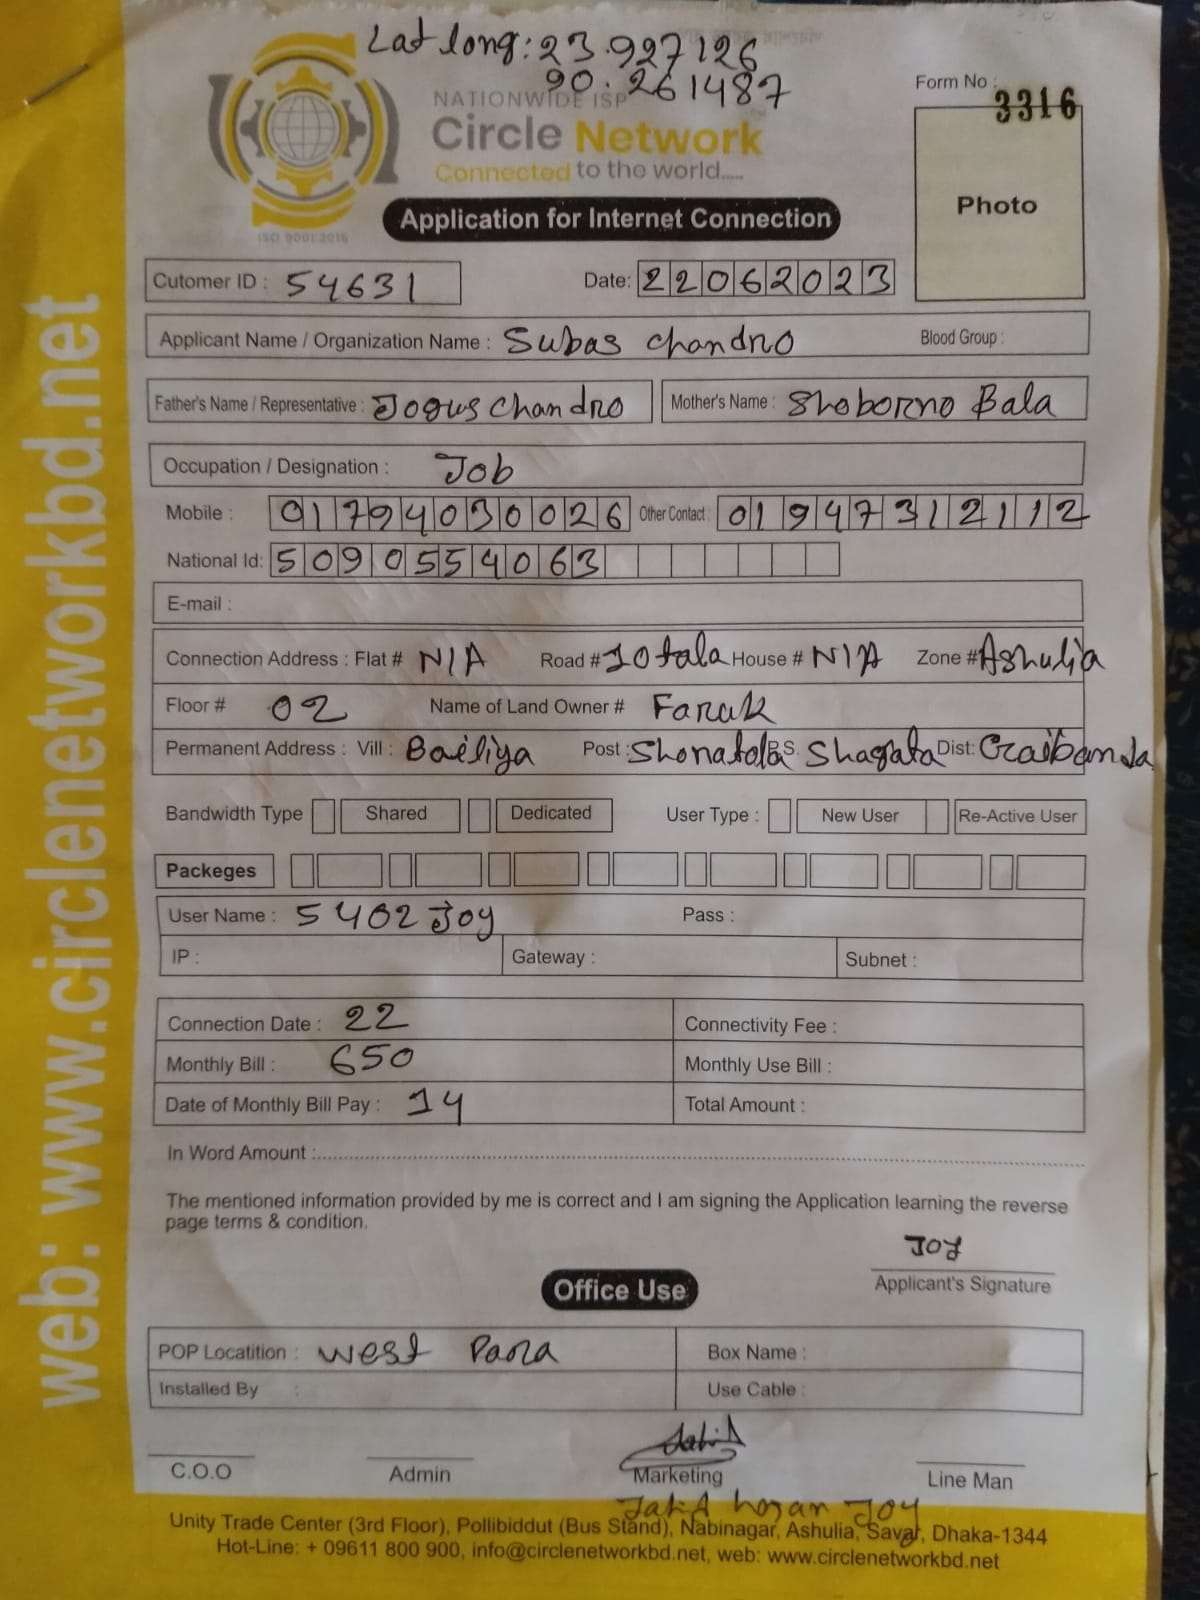 Lat long: 23.927126
90.261487
NATIONWIDE ISP
Circle Network
Connected to the world.....
ISO 9001:2015
Form No : 3316
Photo
Application for Internet Connection
Cutomer ID : 54631 Date: 22062023
Applicant Name / Organization Name : Subas Chandro Blood Group :
Father's Name / Representative : Jogus Chandro Mother's Name : Shoborno Bala
Occupation / Designation : Job
Mobile : 01794030026 Other Contact : 01947312112
National Id: 5090554063
E-mail :
Connection Address : Flat # N/A Road # 10tala House # N/A Zone # Ashulia
Floor # 02 Name of Land Owner # Faruk
Permanent Address : Vill : Bailiya Post : Shonatola P.S. Shagata Dist: Gaibanda
Bandwidth Type Shared Dedicated User Type : New User Re-Active User
Packeges
User Name : 5402 Joy Pass :
IP : Gateway : Subnet :
Connection Date : 22 Connectivity Fee :
Monthly Bill : 650 Monthly Use Bill :
Date of Monthly Bill Pay : 14 Total Amount :
In Word Amount :
The mentioned information provided by me is correct and I am signing the Application learning the reverse
page terms & condition.
Joy
Applicant's Signature
Office Use
POP Locatition : West Para Box Name :
Installed By : Use Cable :
C.O.O Admin Marketing Line Man
Joy
Unity Trade Center (3rd Floor), Pollibiddut (Bus Stand), Nabinagar, Ashulia, Savar, Dhaka-1344
Hot-Line: + 09611 800 900, info@circlenetworkbd.net, web: www.circlenetworkbd.net
web: www.circlenetworkbd.net